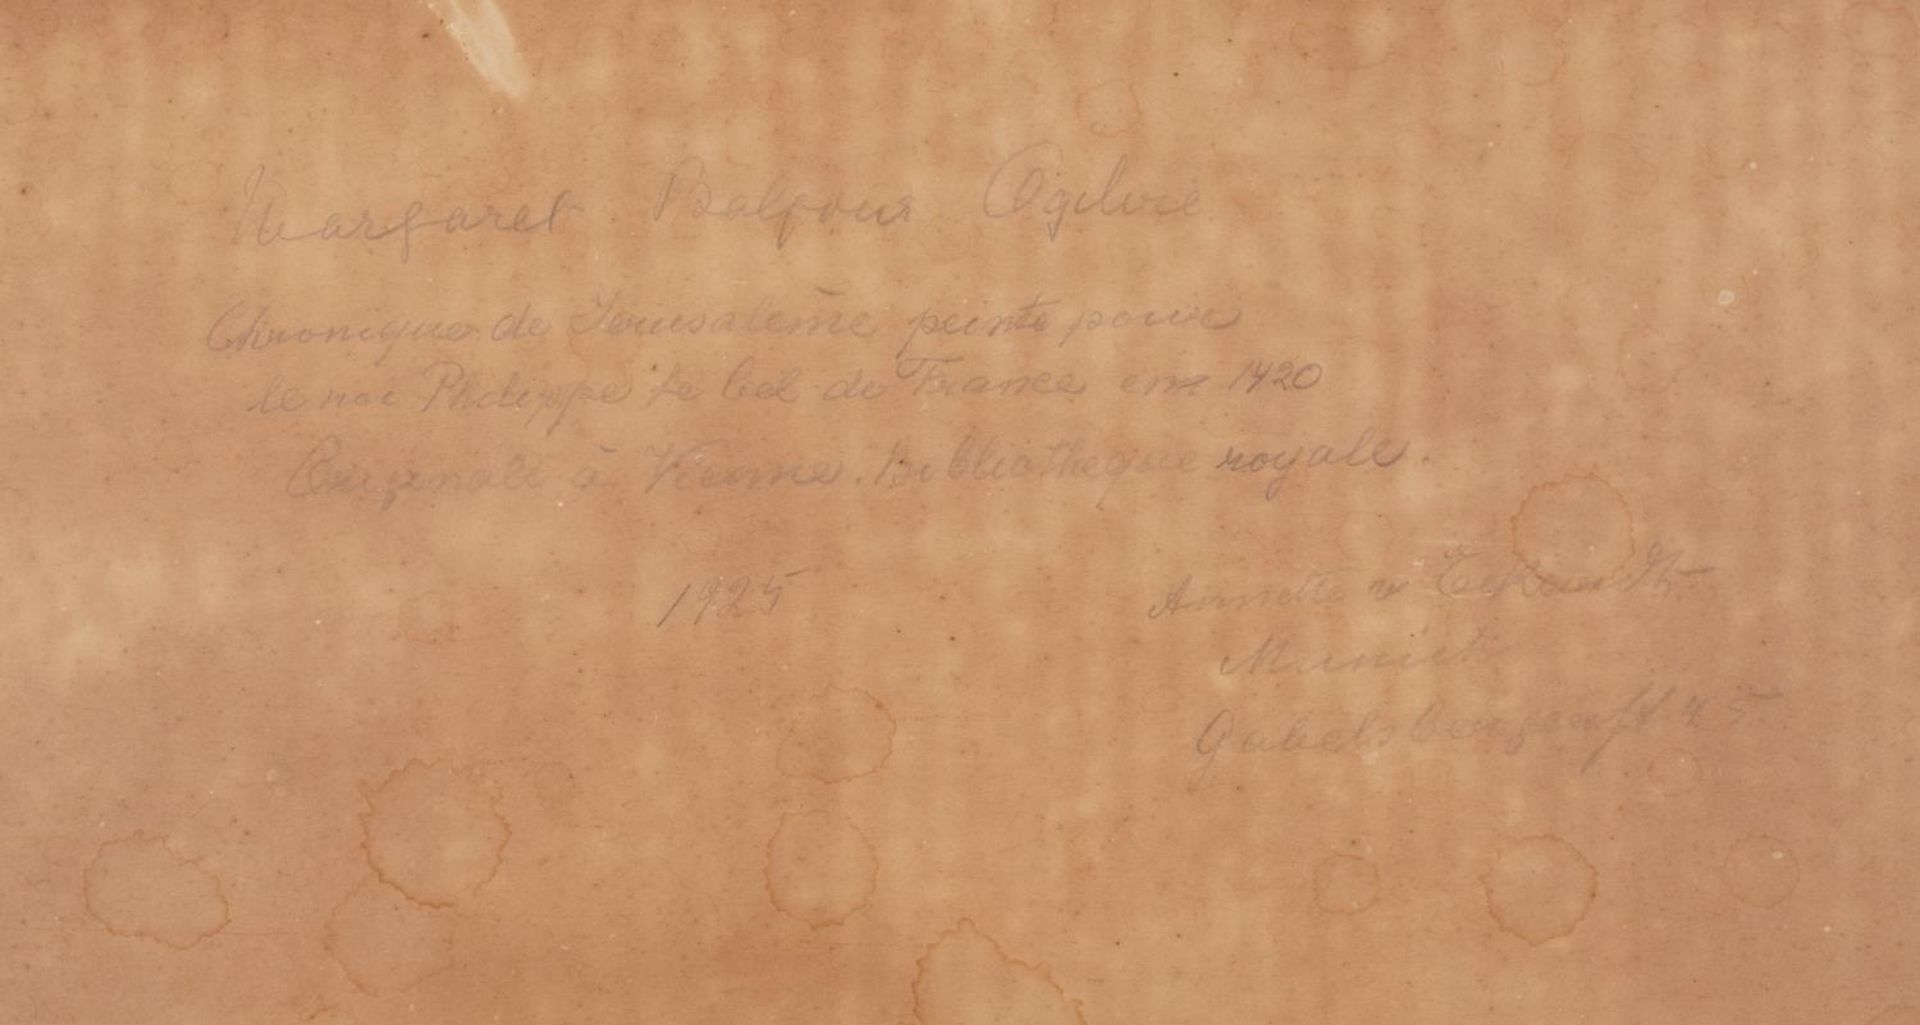 Margaret Balfour Ogilvie
Chronique de Jerusaleme peinte pour
le roi Philippe le bel de France em 1420
Originale à Vienne. Bibliotheque royale.
1925
Annette v Eckardt
Munich
Gabelsbergerst 45